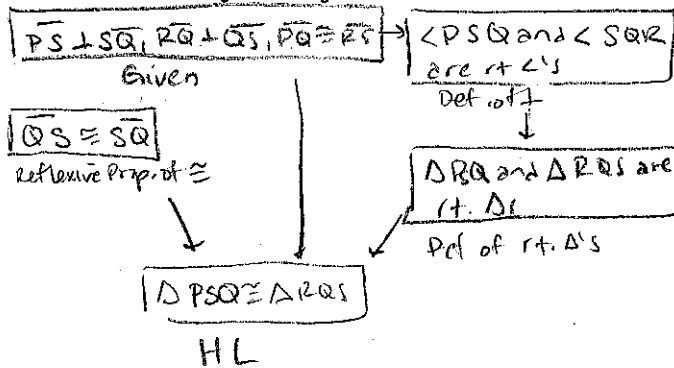 PS ⊥ SQ, RQ ⊥ QS, PQ ≅ RS
Given
<PSQ and <SQR
are rt <'s
Def. of ⊥
QS ≅ SQ
Reflexive Prop. of ≅
Δ PSQ and Δ RQS are
rt. Δs
Def of rt. Δ's
Δ PSQ ≅ Δ RQS
HL